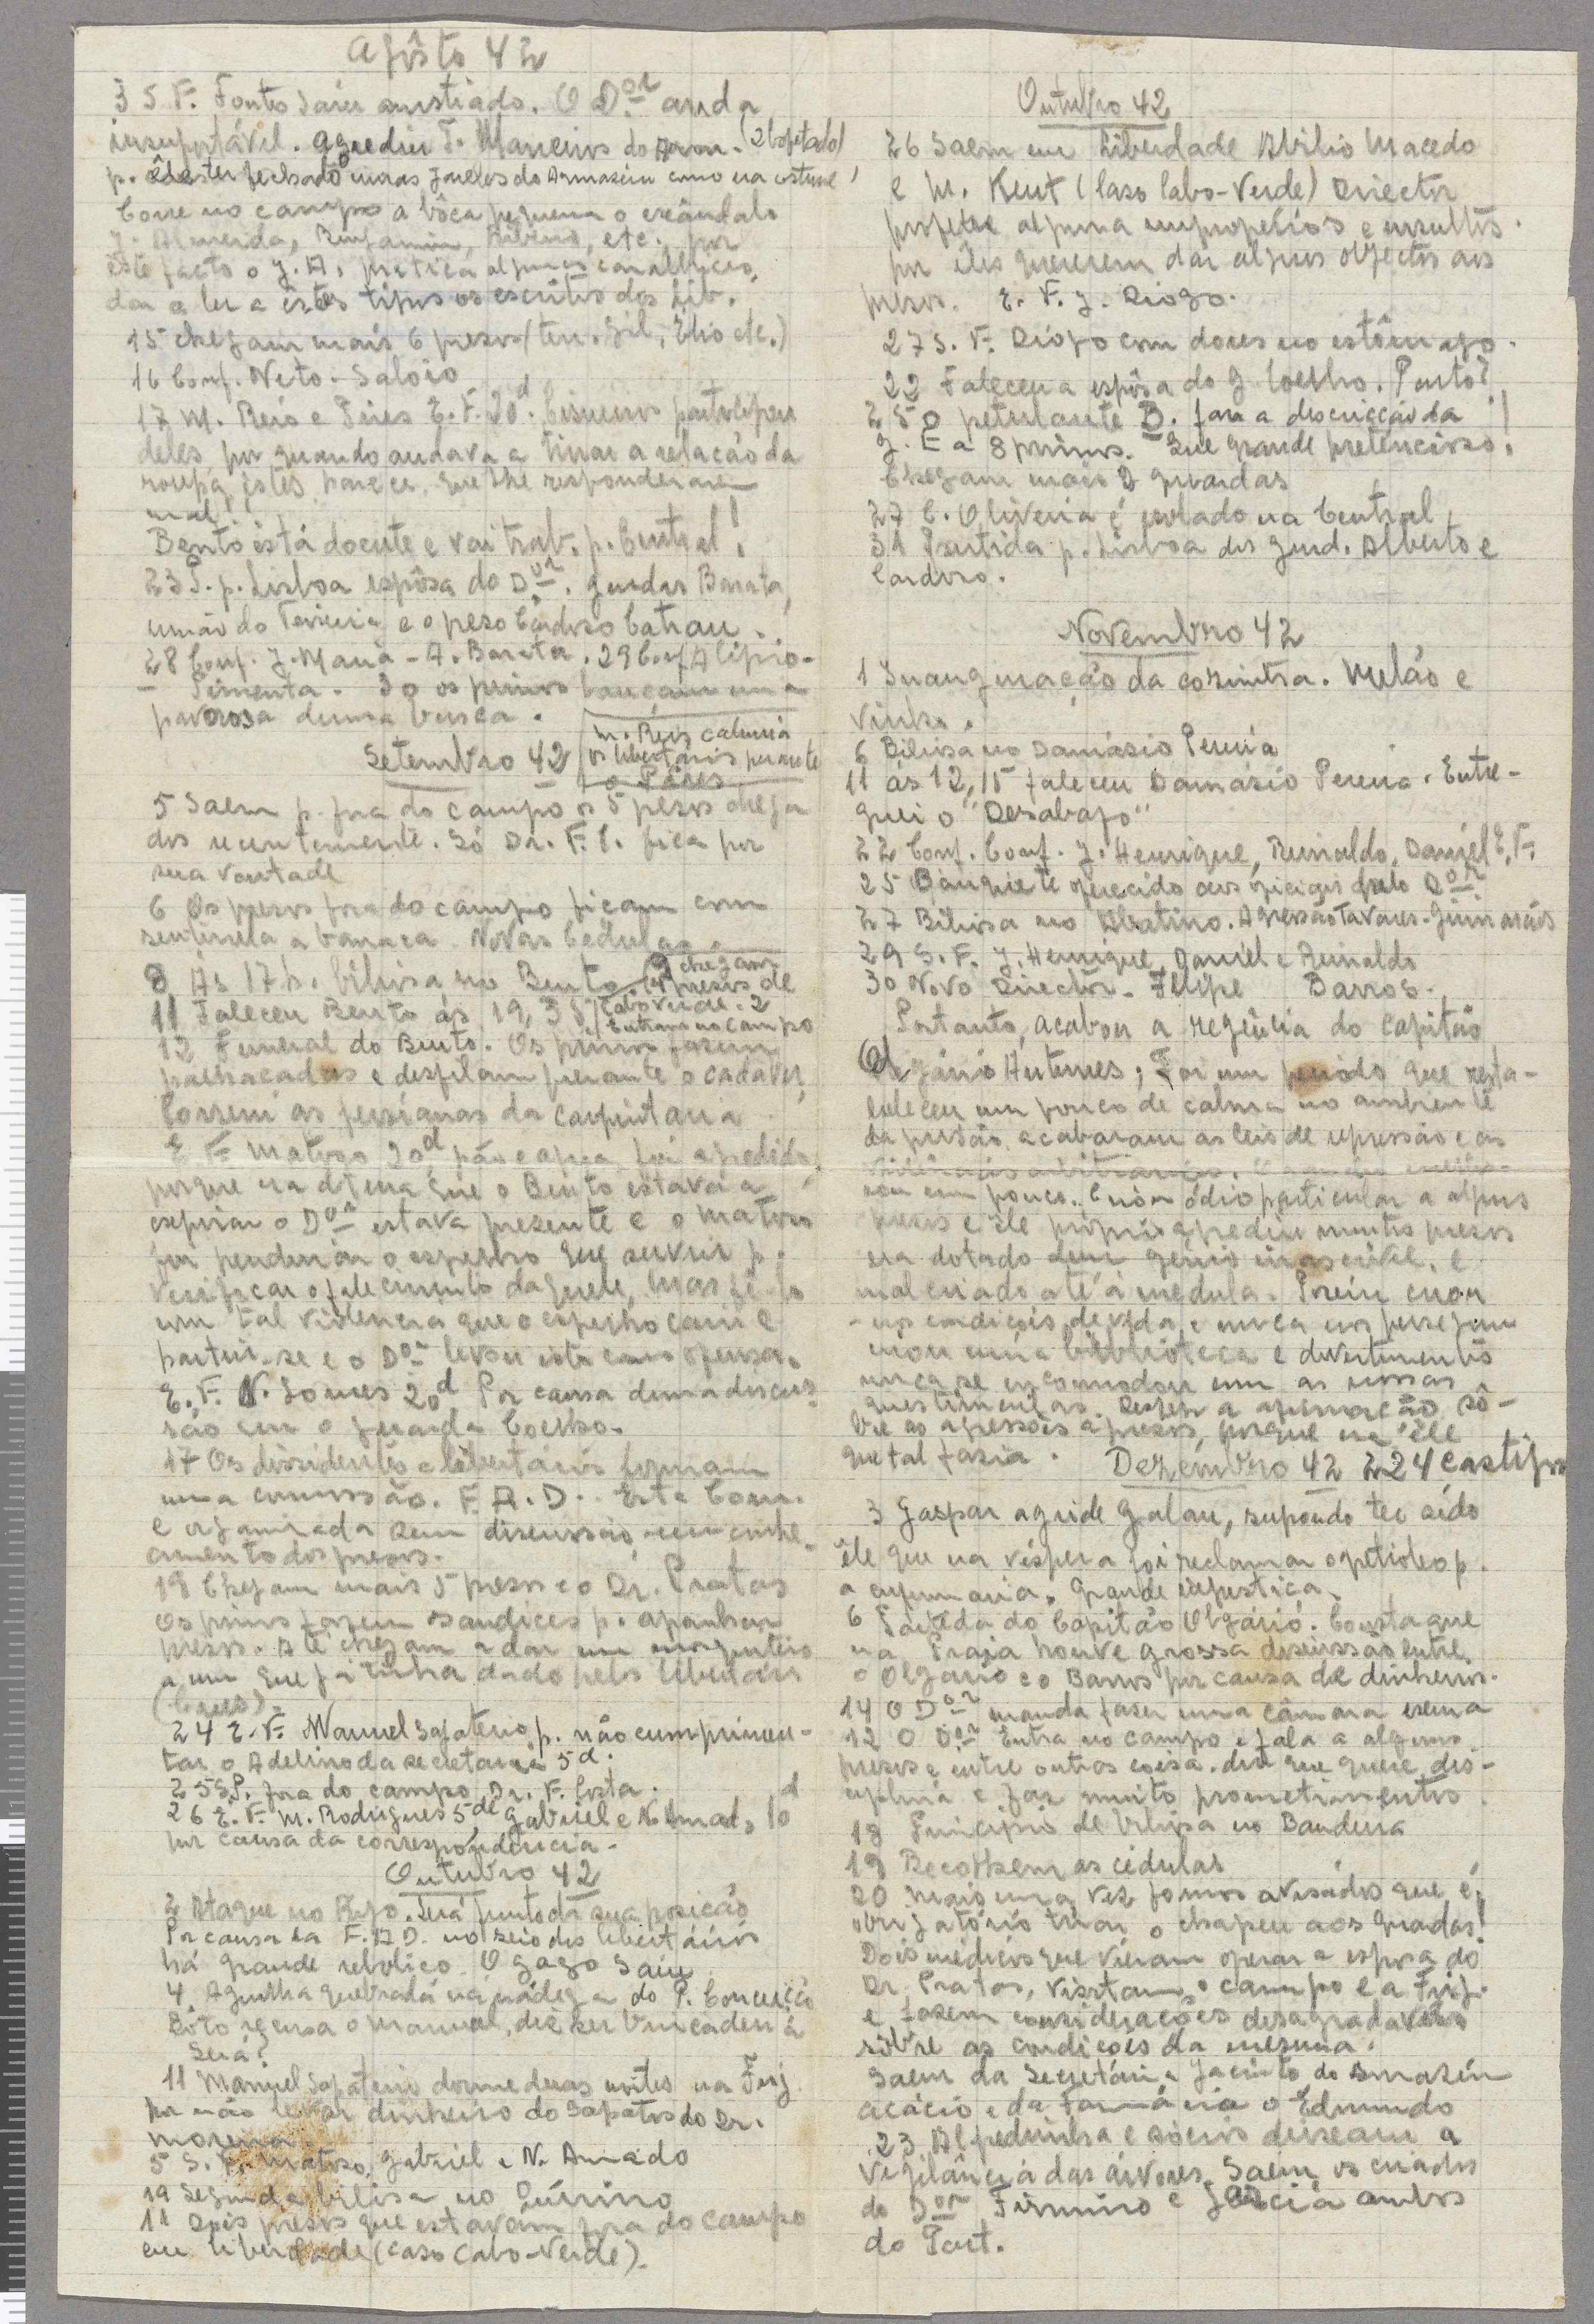 Agôsto 42
3 S. F. Fontes Saiu amnstiado. O D.or anda
insuportável. Agrediu F. Marceiros do Arm. (2 bofetadas)
p. êste ter fechado umas janelas do Armazém como era costume
Corre no campo a bôca pequena o escândalo
J. Almeida, Benjamim, Ribeiro, etc. por
êste facto o J. A. pratica algumas canalhices,
dar a ler a êstes tipos os escritos dos Lib.
15 chegam mais 6 presos (ten. Gil, Élio etc.)
16 Conf. Neto - Saloio
17 M. Reis e Pires E. F. 20d. Cisneiros participou
deles, por quando andava a tirar a relação da
roupa, êstes parece que lhe responderam
mal
Bento está doente e vai trab. p. Central!
23 P. p. Lisboa espôsa do D.or, guardas Barata,
irmão do Teixeira e o preso Cardoso Catrau.
28 Conf. J. Maria - A. Barata. 29 Conf. Alípio -
- Pimenta. 30 os primos lançam uma
pavorosa duma busca.
M. Reis calunia
os libertários perante
o Pires
Setembro 42
5 Saem p. fora do campo os 5 presos chega
dos recentemente. Só Dr. F. C. fica por
sua vontade
6 Os presos fora do campo ficam com
sentinela a barraca. Novas Cédulas.
8 Às 17 h. biliosa no Bento. (9 chegam
4 presos de
Cabo Verde. 2
Entram no campo
11 Faleceu Bento às 19,35
12 Funeral do Bento. Os primos fazem
palhaçadas e desfilam perante o cadaver
Correm as persianas da carpintaria
E. F. Matoso 20d pão e agua. Foi a pedido
porque na altura que o Bento estava a
espirar o D.or estava presente e o Matoso
foi pendurar o espelho que serviu p.
verificar o falecimento daquele, mas fê-lo
com tal violencia que o espelho caiu e
partiu-se e o D.or levou isto como ofensa.
E. F. N. Gomes 20d Por causa duma discus-
são com o guarda Coelho.
17 Os dissidentes e libertários formam
uma comissão. F. A. D. Esta Com.
é organizada sem discussão nem conhe-
cimento dos presos.
19 Chegam mais 5 presos e o Dr. Pratas
Os primos fazem sandices p. apanhar
presos. Até chegam a dar um mosquiteiro
a um que já tinha dado pelos libertários
24 E. F. Manuel Sapateiro p. não cumprimen-
tar o Adelino da secretaria 5d.
25 S. P. fora do campo Dr. F. Costa.
26 E. F. M. Rodrigues 5d e Gabriel e N. Amado 10d
por causa da correspondencia.
Outubro 42
2 Ataque no Rijo. Será fruto da sua posição
Por causa da F. A. D. no seio dos libertários
há grande rebolico. O Gago Saiu
4 Agulha quebrada na nádega do P. Conceição
Bôto acusa o Manuel, diz ser brincadeira
Será?
11 Manuel Sapateiro dorme duas noites na Frig.
por não levar dinheiro do sapatos do Dr.
Moreira.
5 S. F. Matoso, Gabriel e N. Amado
19 Segunda biliosa no Quirino
11 Dois presos que estavam fora do campo
em liberdade (caso Cabo-Verde).
Outubro 42
26 Saem em Liberdade Abilio Macedo
e M. Kent (Caso Cabo-Verde) Director
profere alguns impropérios e insultos.
por êles quererem dar alguns objectos aos
presos. E. F. J. Diogo.
27 S. F. Diogo com dores no estômago.
22 Faleceu a espôsa do J. Coelho. Parto?
25 O petulante B. faz a descrição da
G. E. a 8 primos. Que grande pretencioso!
Chegam mais 2 guardas
27 C. Oliveira é isolado na Central
31 Partida p. Lisboa dos guard. Alberto e
Cardoso.
Novembro 42
1 Inauguração da cosinha. Melão e
vinho.
6 Biliosa no Damásio Pereira
11 às 12,15 faleceu Damásio Pereira. Entre-
guei o "Desabafo"
22 Conf. Conf. J. Henrique, Reinaldo, Daniel E. F.
25 Banquete oferecido aos oficiais pelo D.or
27 Biliosa no Albertino. Agressão Tavares-Guimarãis
29 S. F. J. Henrique, Daniel e Reinaldo
30 Novo Director. Filipe Barros.
Portanto, acabou a regência do capitão
Olegário Antunes; Foi um periodo que resta-
beleceu um pouco de calma no ambiente
da prisão. acabaram as leis de repressão e as
um pouco. Criou ódio particular a alguns
presos e êle próprio agrediu muitos presos
era dotado dum génio irascivel, e
malcriado até à medula. Porém criou
-nos condições de vida e nunca nos perseguiu
criou uma biblioteca e divertimentos
nunca se incomodou com as nossas
questiunculas. Desfez a afirmação sô-
bre as agressões a presos, porque era êle
que tal fazia.
Dezembro 42 224 castigos
3 Gaspar agride Galau, supondo ter sido
êle que na véspera foi reclamar o petróleo p.
a enfermaria. Grande injustiça.
6 Saída do Capitão Olgário. Consta que
na Praia houve grossa discussão entre
o Olgario e o Barros por causa de dinheiros.
14 O D.or manda fazer uma câmara escura
12 O D.or Entra no campo e fala a alguns
presos e entre outras coisa. diz que quere dis-
ciplina e faz muito prometimentos
18 Principio de biliosa no Bandeira
19 Recolhem as cédulas
20 Mais uma vez fomos avisados que é
obrigatório tirar o chapeu aos guardas!
Dois médicos que vieram operar a esposa do
Dr. Pratas, visitam o campo e a Frig.
e fazem considerações desagradaveis
sôbre as condições da mesma.
Saem da Secretária Jacinto do Armazém
Acácio e da Farmácia o Edmundo
23 Alpedrinha e sócios deixam a
vigilância das árvores. Saem os criados
do D.or Firmino e Garcia ambos
do Part.